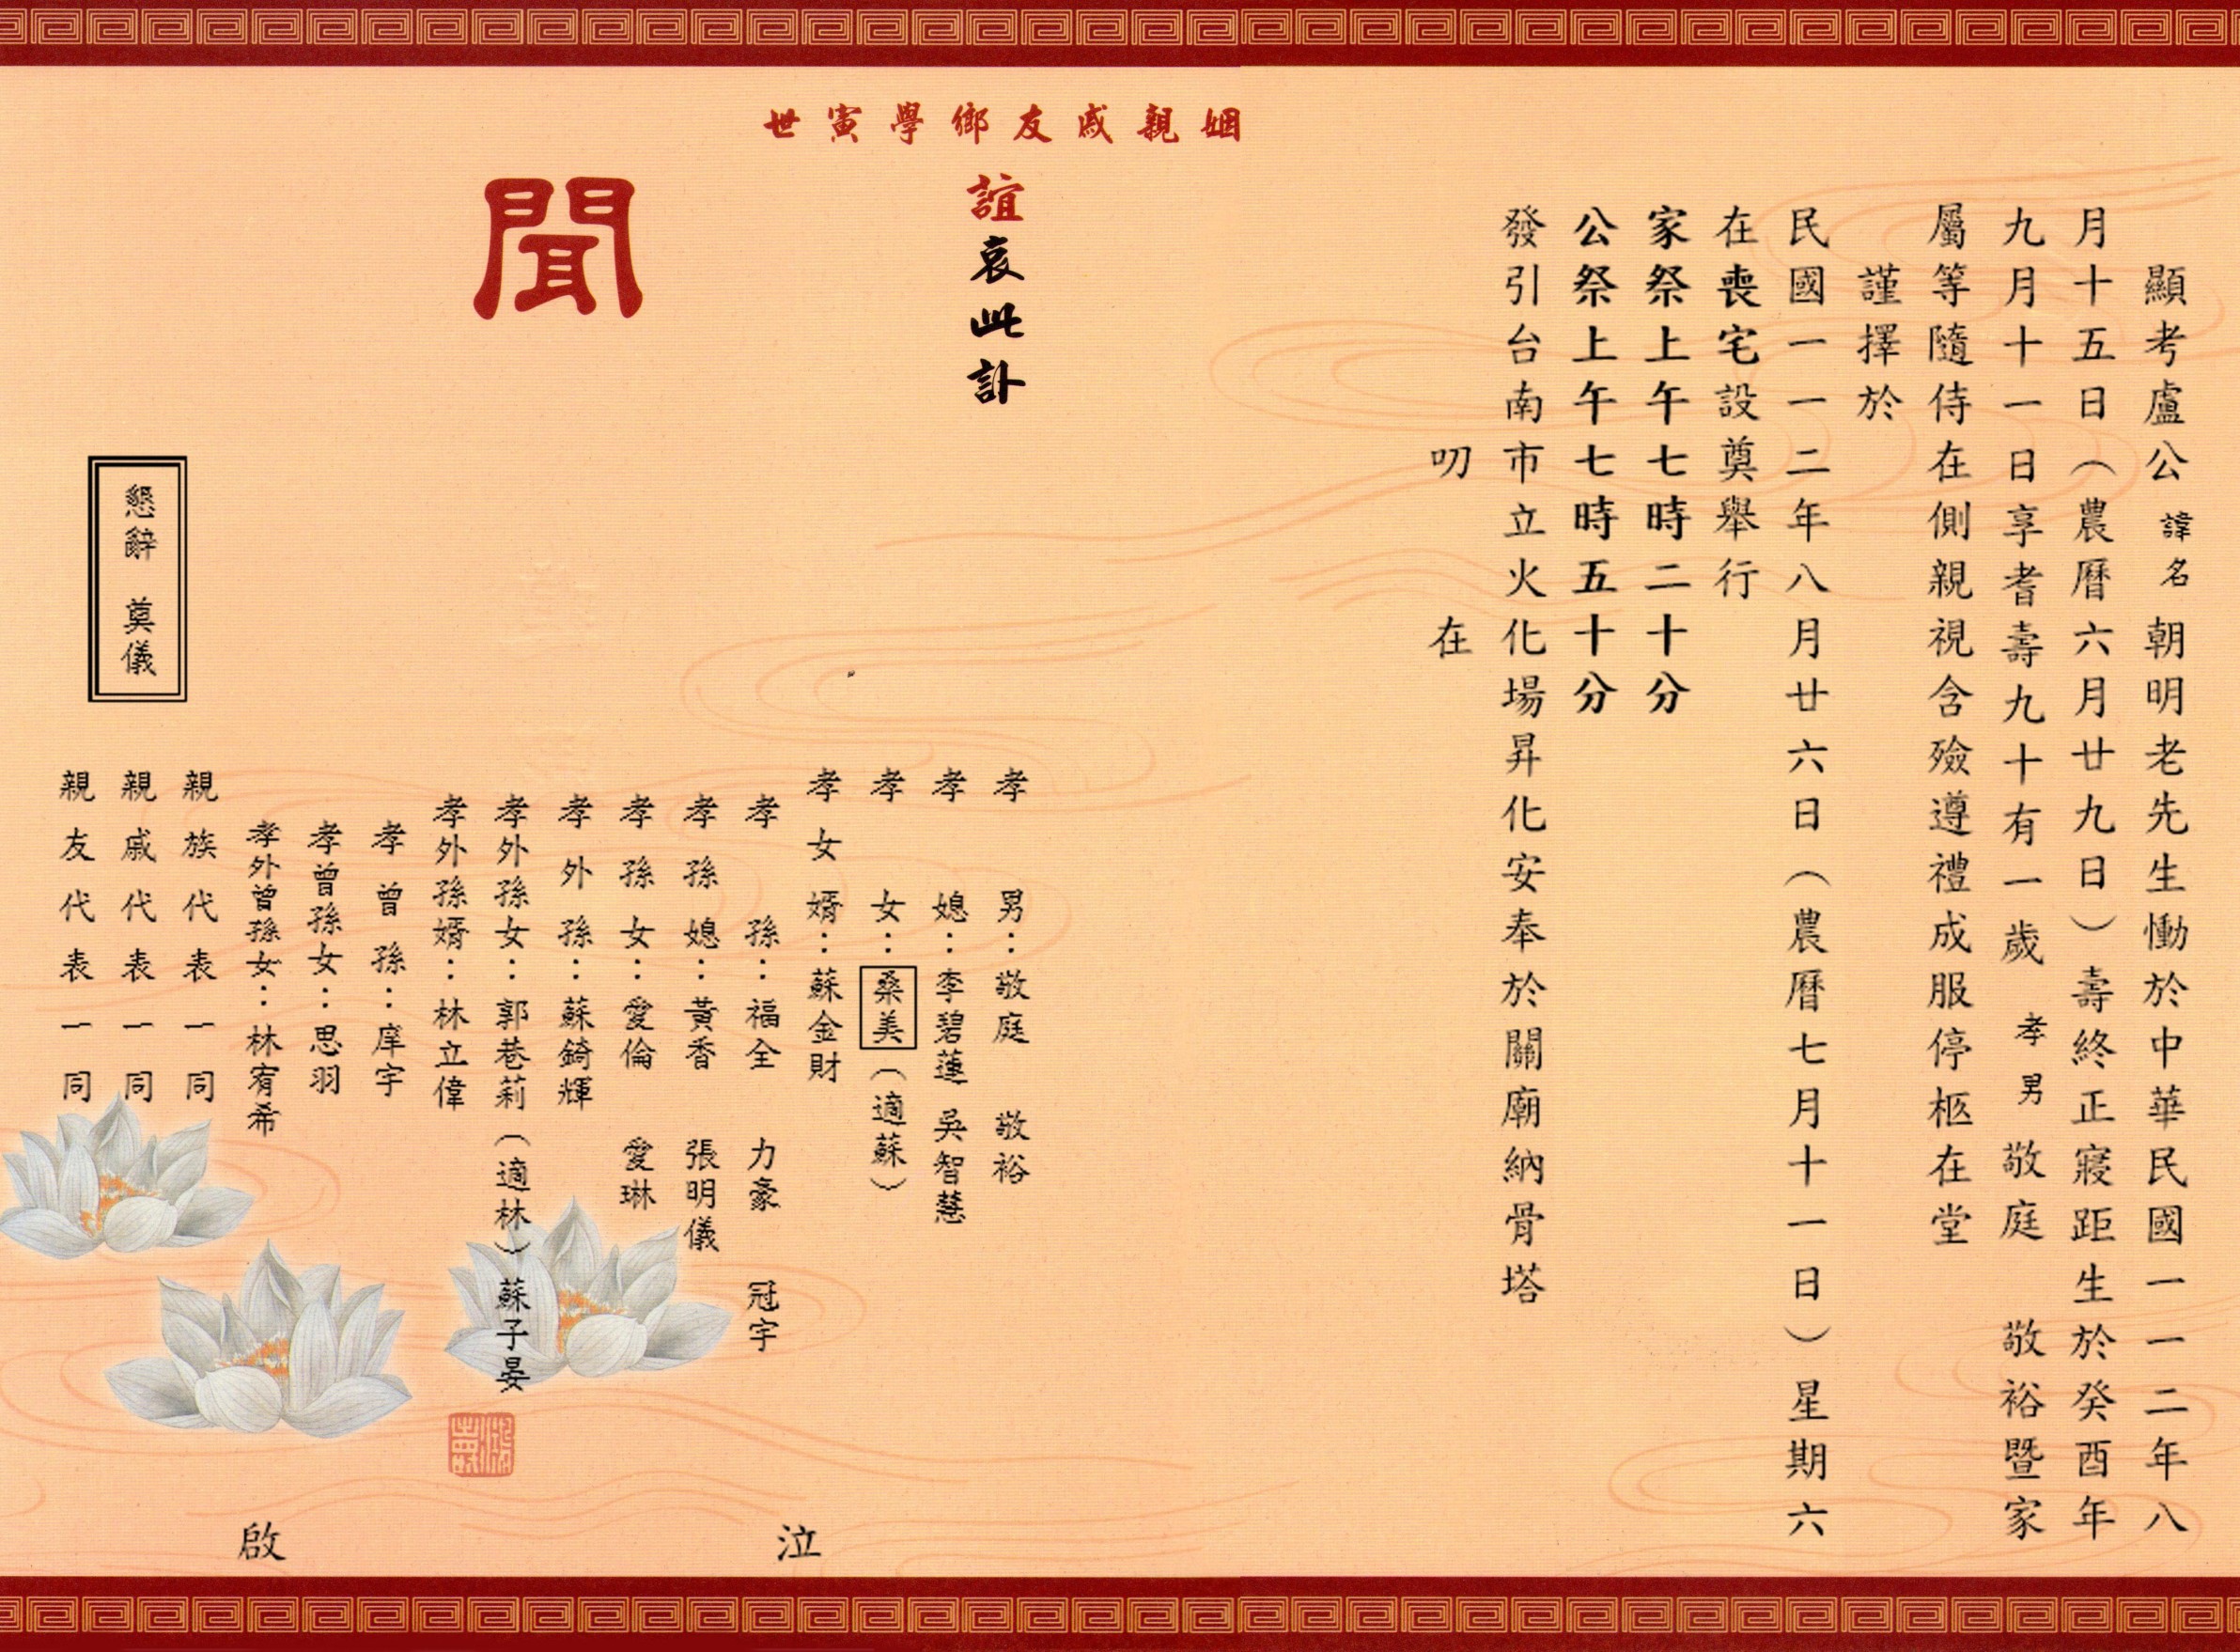 顯考盧公諱名朝明老先生慟於中華民國一一二年八
月十五日（農曆六月廿九日）壽終正寢距生於癸酉年
九月十一日享耆壽九十有一歲孝男敬庭　敬裕暨家
屬等隨侍在側親視含殮遵禮成服停柩在堂
謹擇於
民國一一二年八月廿六日（農曆七月十一日）星期六
在喪宅設奠舉行
家祭上午七時二十分
公祭上午七時五十分
發引台南市立火化場昇化安奉於關廟納骨塔
叨　在
姻親戚友鄉學寅世
誼哀此訃
聞
孝男：敬庭　敬裕
孝媳：李碧蓮　吳智慧
孝女：桑美（適蘇）
孝女婿：蘇金財
孝孫：福全　力豪　冠宇
孝孫媳：黃香　張明儀
孝孫女：愛倫　愛琳
孝外孫：蘇錡輝
孝外孫女：郭巷莉（適林）蘇子晏
孝外孫婿：林立偉
孝曾孫：庠宇
孝曾孫女：思羽
孝外曾孫女：林宥希
親族代表一同
親戚代表一同
親友代表一同
泣　啟
懇辭　奠儀